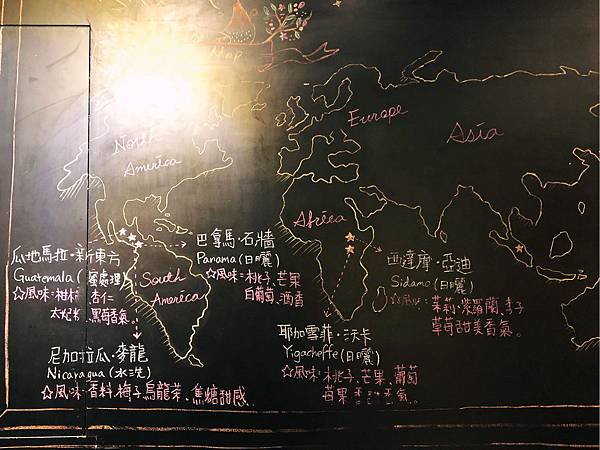 Map
North
America
Europe
Asia
Africa
South
America
瓜地馬拉·新東方
Guatemala (蜜處理)
☆風味=柑橘、杏仁
太妃糖、黑莓香氣
巴拿馬·石牆
Panama (日曬)
☆風味=桃子、芒果
白葡萄、酒香
尼加拉瓜·麥龍
Nicaragua (水洗)
☆風味=香料、梅子、烏龍茶、焦糖甜感
西達摩·亞迪
Sidamo (日曬)
☆風味:茉莉、紫羅蘭、李子
草莓甜美香氣。
耶加雪菲·沃卡
Yigacheffe (日曬)
☆風味:桃子、芒果、葡萄
莓果